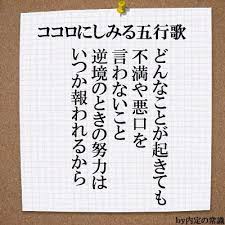 ココロにしみる五行歌
どんなことが起きても
不満や悪口を
言わないこと
逆境のときの努力は
いつか報われるから
by内定の常識